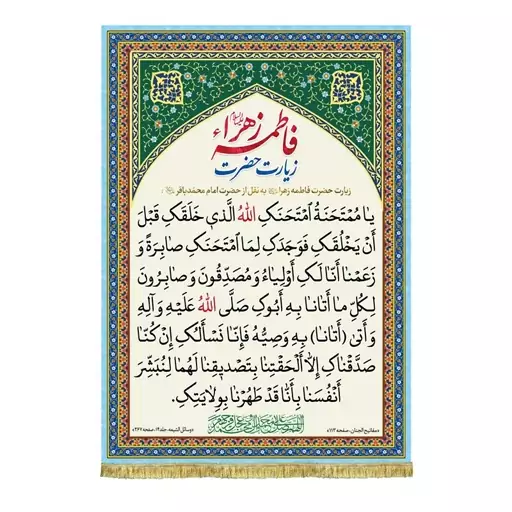 زیارت حضرت
فاطمه زهراء
زیارت حضرت فاطمه زهرا به نقل از حضرت امام محمدباقر :
يا مُمْتَحَنَةُ امْتَحَنَكِ اللهُ الَّذي خَلَقَكِ قَبْلَ
أَنْ يَخْلُقَكِ فَوَجَدَكِ لِمَا امْتَحَنَكِ صابِرَةً وَ
زَعَمْنا أَنّا لَكِ أَوْلِياءُ وَ مُصَدِّقُونَ وَ صابِرُونَ
لِكُلِّ ما أَتانا بِهِ أَبُوكِ صَلَّى اللهُ عَلَيْهِ وَ آلِهِ
وَ أَتىٰ (أَتانا) بِهِ وَصِيُّهُ فَإِنّا نَسْأَلُكِ إِنْ كُنّا
صَدَّقْناكِ إِلّا أَلْحَقْتِنا بِتَصْديقِنا لَهُما لِنُبَشِّرَ
أَنْفُسَنا بِأَنّا قَدْ طَهُرْنا بِوِلايَتِكِ.
اللهم صل علی محمد و آل محمد و عجل فرجهم
«مفاتیح الجنان، صفحه ۷۱۳»
«وسائل الشیعه، جلد ۱۴، صفحه ۳۶۷»